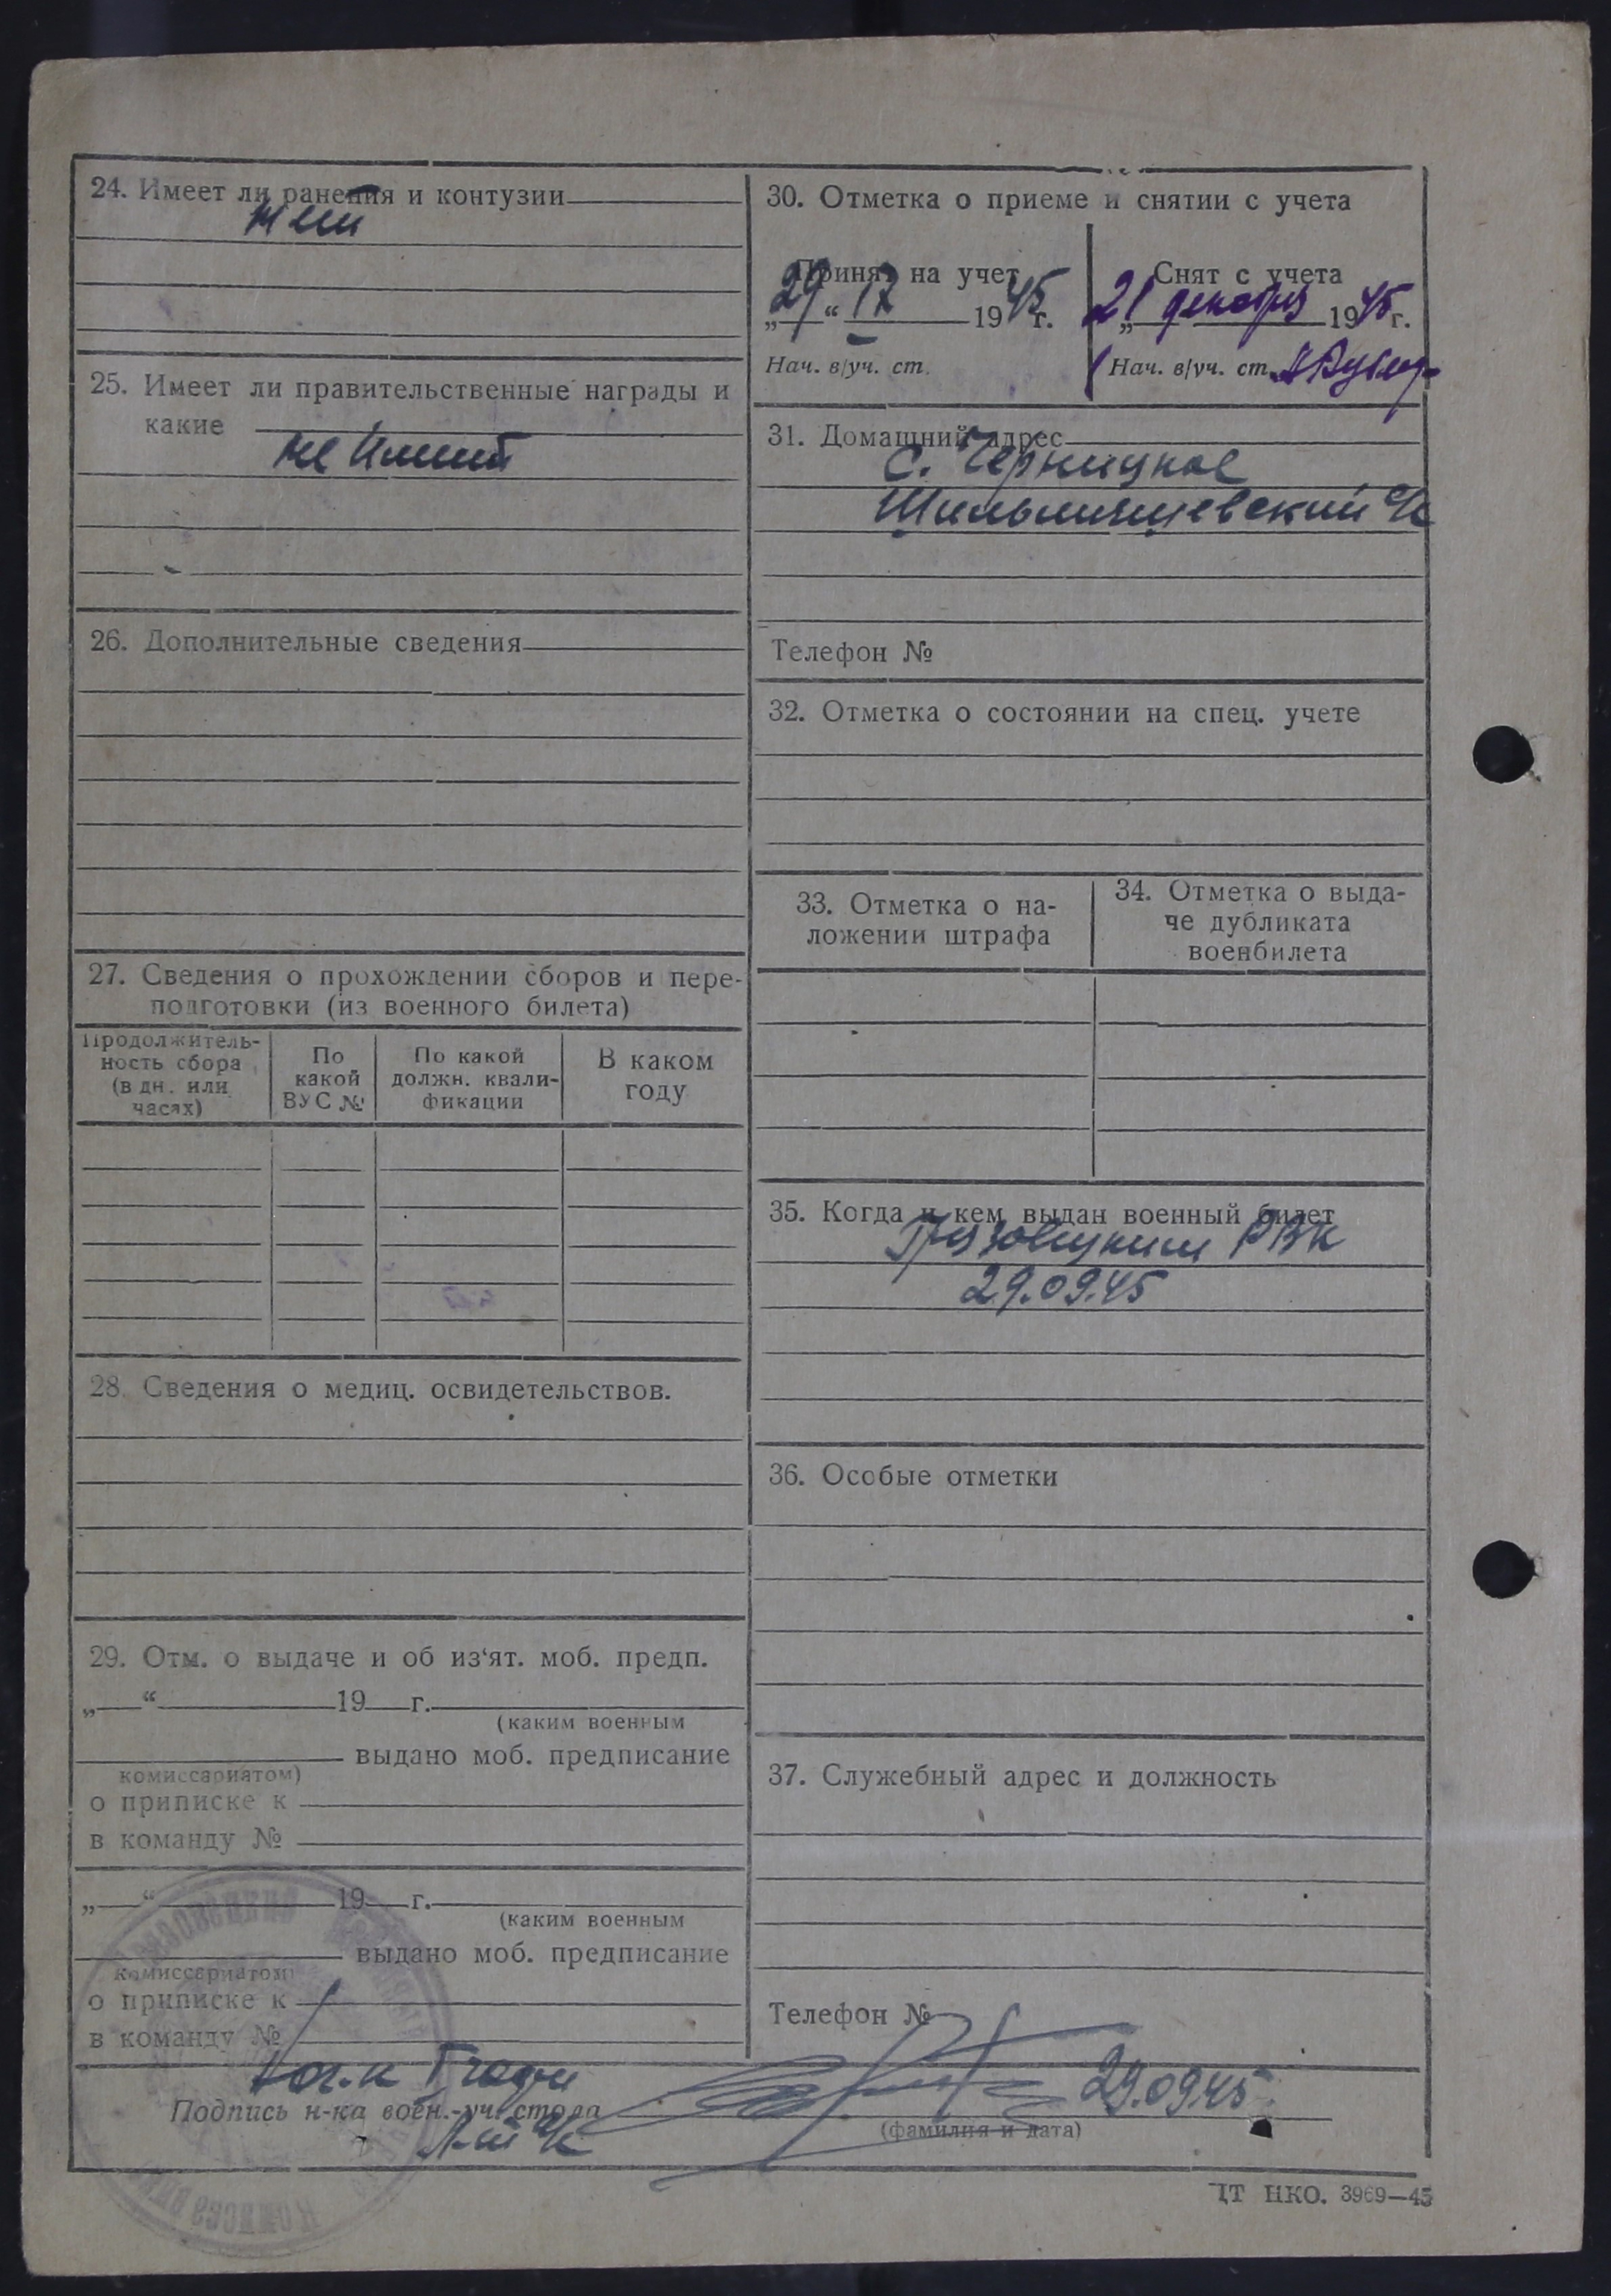 24. Имеет ли ранения и контузии
нет
25. Имеет ли правительственные награды и
какие
не имеет
26. Дополнительные сведения
27. Сведения о прохождении сборов и пере-
подготовки (из военного билета)
Продолжитель-
ность сбора
(в дн. или
часах)
По
какой
ВУС №
По какой
должн. квали-
фикации
В каком
году
28. Сведения о медиц. освидетельствов.
29. Отм. о выдаче и об из‘ят. моб. предп.
„ “ 19 г.
(каким военным
выдано моб. предписание
комиссариатом)
о приписке к
в команду №
„ “ 19 г.
(каким военным
выдано моб. предписание
комиссариатом)
о приписке к
в команду №
30. Отметка о приеме и снятии с учета
Принят на учет
„29“ 12 1945 г.
Нач. в/уч. ст.
Снят с учета
21 декабря 1945 г.
Нач. в/уч. ст.
31. Домашний адрес
с.
Телефон №
32. Отметка о состоянии на спец. учете
33. Отметка о на-
ложении штрафа
34. Отметка о выда-
че дубликата
военбилета
35. Когда и кем выдан военный билет
Грязовецким РВК
29.09.45
36. Особые отметки
37. Служебный адрес и должность
Телефон №
Подпись н-ка воен.-уч. стола
29.09.45
(фамилия и дата)
ЦТ НКО. 3969—45